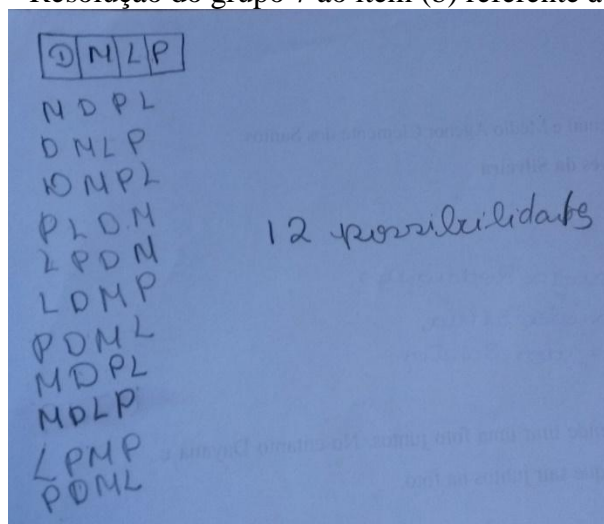 Resolução do grupo 7 ao item (b) referente a
D M L P
M D P L
D M L P
D M P L
P L D M
L P D M
L D M P
P D M L
M D P L
M D L P
L P M P
P D M L
12 possibilidades